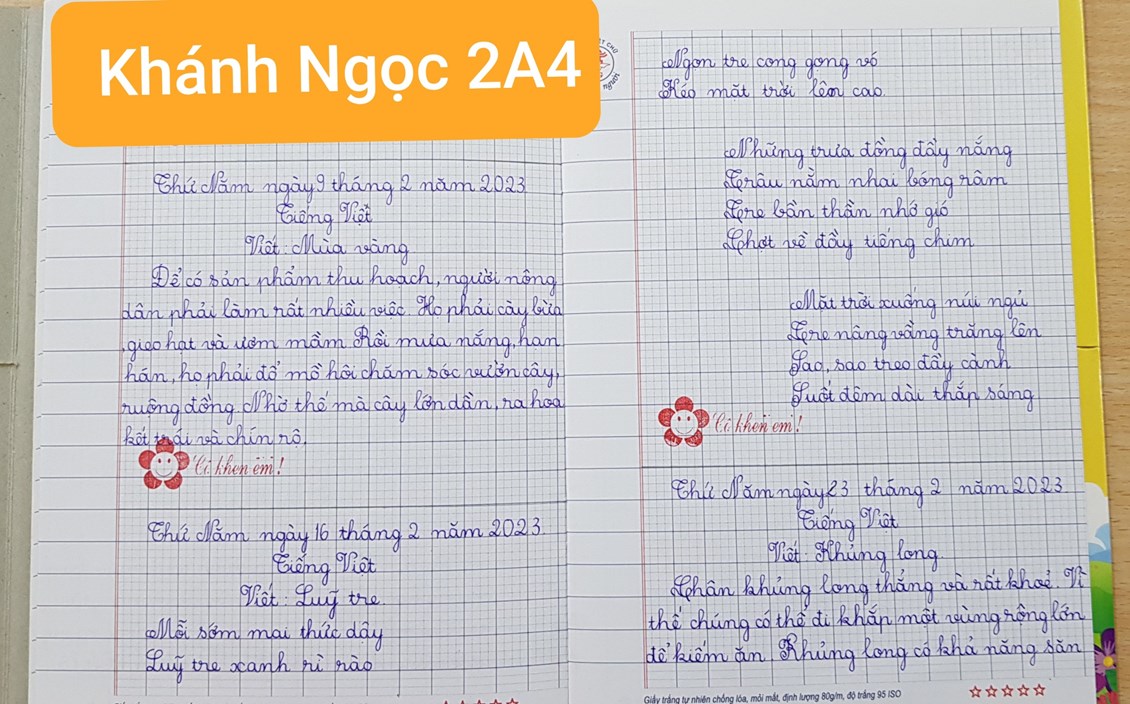 Khánh Ngọc 2A4
Thứ Năm ngày 9 tháng 2 năm 2023
Tiếng Việt
Viết: Mùa vàng
Để có sản phẩm thu hoạch, người nông
dân phải làm rất nhiều việc. Họ phải cày bừa
gieo hạt và ươm mầm. Rồi mưa nắng, hạn
hán, họ phải đổ mồ hôi chăm sóc vườn cây,
ruộng đồng. Nhờ thế mà cây lớn dần, ra hoa
kết trái và chín rộ.
Cô khen em!
Thứ Năm ngày 16 tháng 2 năm 2023.
Tiếng Việt
Viết: Luỹ tre
Mỗi sớm mai thức dậy
Luỹ tre xanh rì rào
Ngọn tre cong gọng vó
Kéo mặt trời lên cao.
Những trưa đồng đầy nắng
Trâu nằm nhai bóng râm
Tre bần thần nhớ gió
Chợt về đầy tiếng chim
Mặt trời xuống núi ngủ
Tre nâng vầng trăng lên
Sao, sao treo đầy cành
Suốt đêm dài thắp sáng
Cô khen em!
Thứ Năm ngày 23 tháng 2 năm 2023
Tiếng Việt
Viết: Khủng long.
Chân khủng long thẳng và rất khoẻ. Vì
thế chúng có thể đi khắp một vùng rộng lớn
để kiếm ăn. Khủng long có khả năng săn
Giấy trắng tự nhiên chống lóa, mỏi mắt, định lượng 80g/m, độ trắng 95 ISO